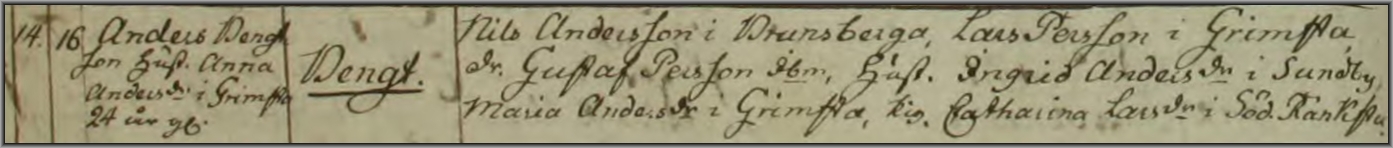 14. 16 Anders Bengt
son Hust. Anna
Andersdr i Grimsta
24 år gl.
Bengt.
Nils Andersson i Brunsberga, Lars Persson i Grimsta,
dr. Gustaf Persson ibm, Hust. Ingrid Andersdr i Sundby,
Maria Andersdr i Grimsta, pig. Catharina Larsdr i Söd. Ranksta.